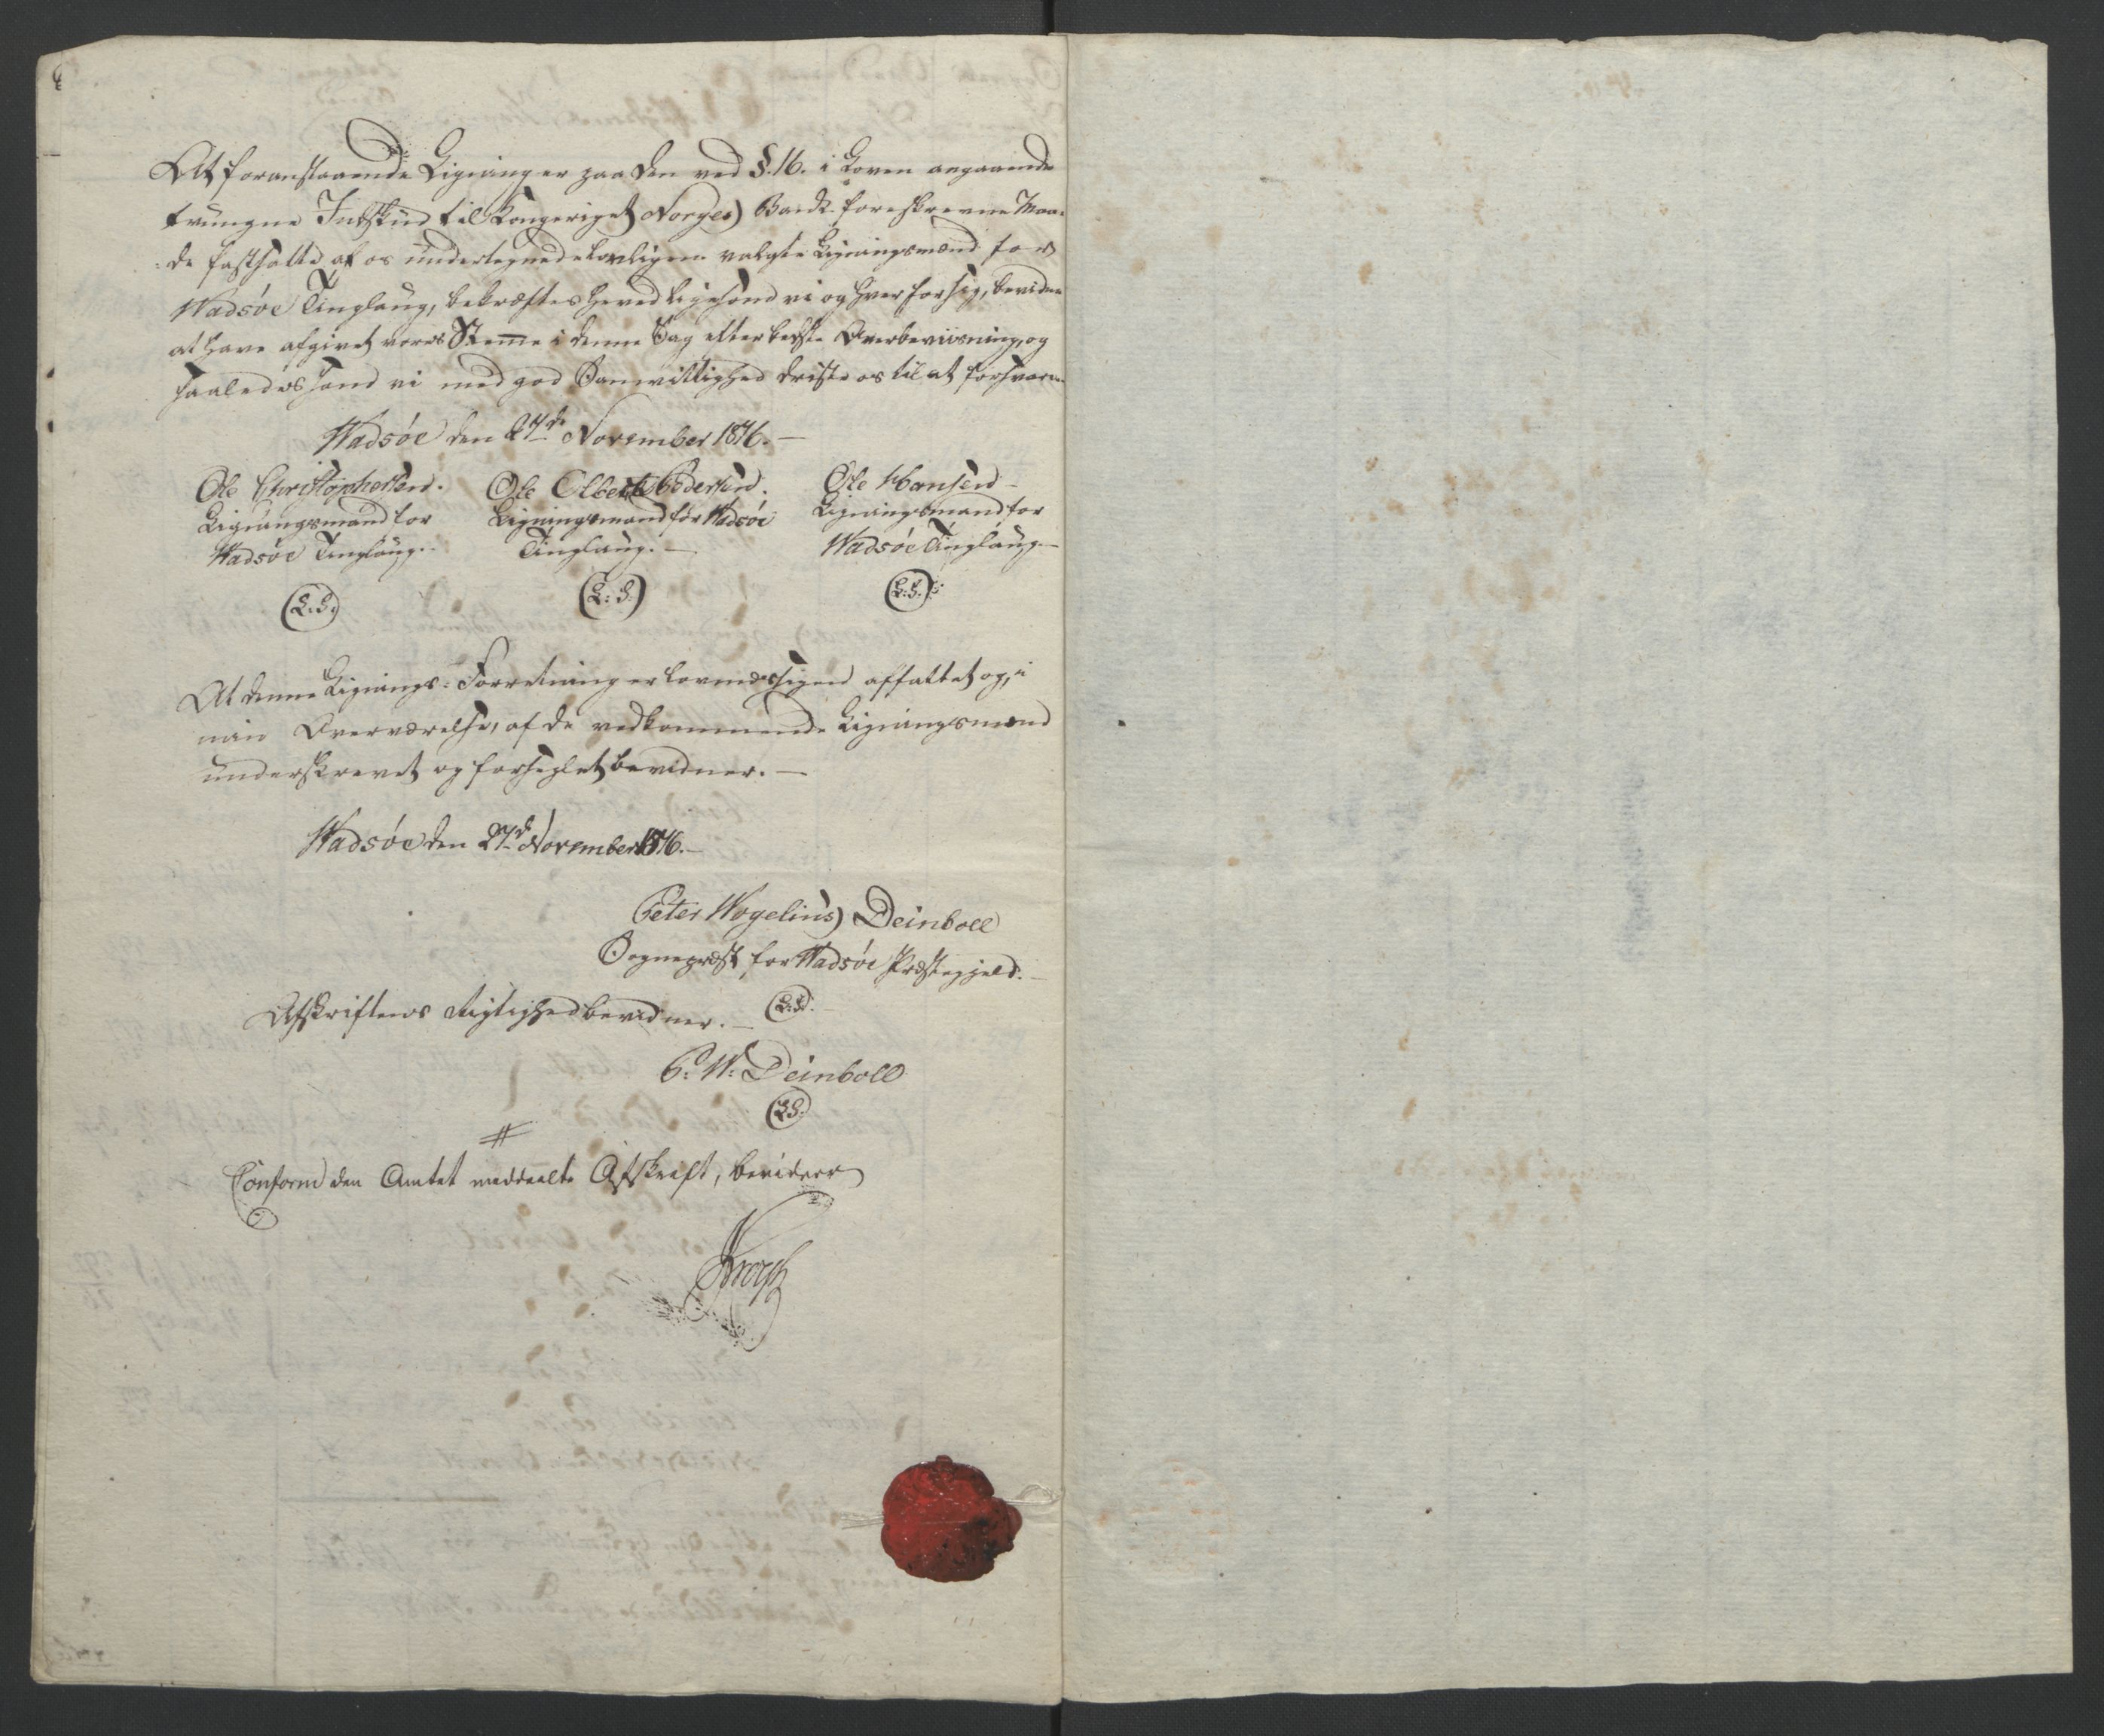 At foranstaaende Ligning er paa den ved §. 16. i Loven angaaende
tvungne Indskud til Kongeriget Norges Bank foreskrevne Maa-
de fastsatte af os undertegnede lovligen valgte Ligningsmænd for
Wadsøe Tinglaug, bekræftes herved ligesom vi og hver for sig, bevidne
at have afgivet vores Stemme i denne Sag efter bedste Overbeviisning, og
saaledes som vi med god Samvittighed driste os til at forsvare.
Wadsøe den 27de November 1816. —
Ole Christophersen. Ole Olbert Pedersen. Ole Hansen
Ligningsmand for Ligningsmand for Wadsøe Ligningsmand for
Wadsøe Tinglaug. Tinglaug. — Wadsøe Tinglaug —
(L. S.) (L: S.) (L: S.)
At denne Lignings-Forretning er lovmæssigen affattet og, i
min Overværelse, af de vedkommende Ligningsmænd
underskrevet og forseglet bevidner. —
Wadsøe den 27d November 1816. —
Peter Wogelius Deinboll
Sognepræst for Wadsøe Præstegjeld. —
Afskriftens Rigtighed bevidner. — (L. S.) —
P: W: Deinboll
(L S.)
Conform den Amtet meddeelte Afskrift, bevidner
Krogh